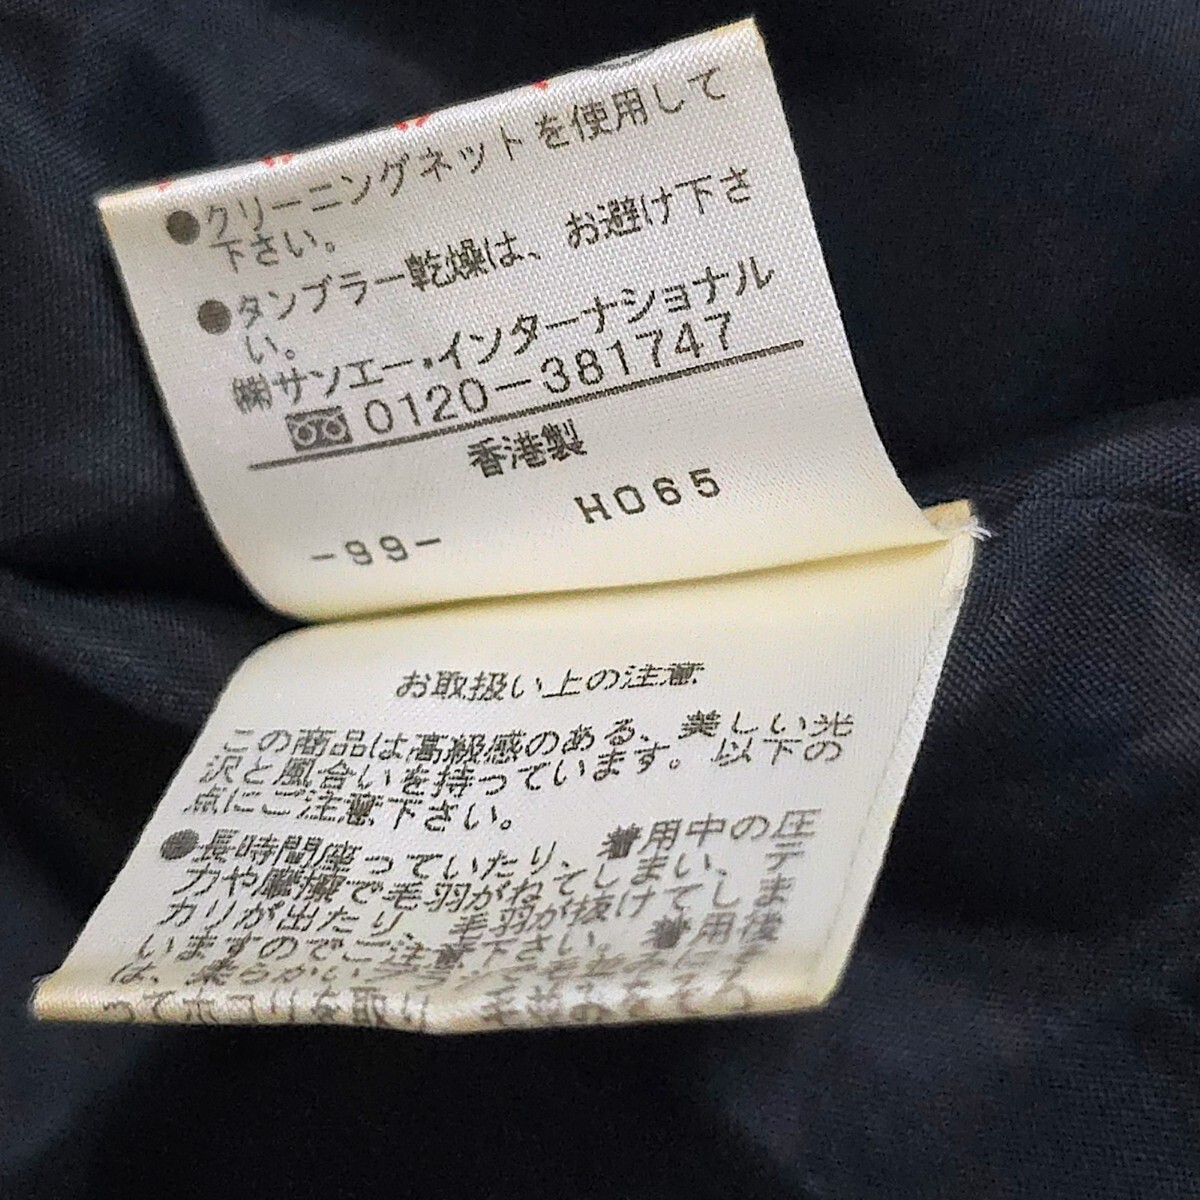 ●クリーニングネットを使用して
下さい。
●タンブラー乾燥は、お避け下さ
い。
㈱サンエー・インターナショナル
0120-381747
香港製
H065
-99-
お取扱い上の注意
この商品は高級感のある、美しい光
沢と風合いを持っています。以下の
点にご注意下さい。
●長時間座っていたり、着用中の圧
力や摩擦で毛羽がねてしまい、テ
カリが出たり、毛羽が抜けてしま
いますのでご注意下さい。着用後
は、柔らかいブラシで毛並みにそ
ってホコリを取り